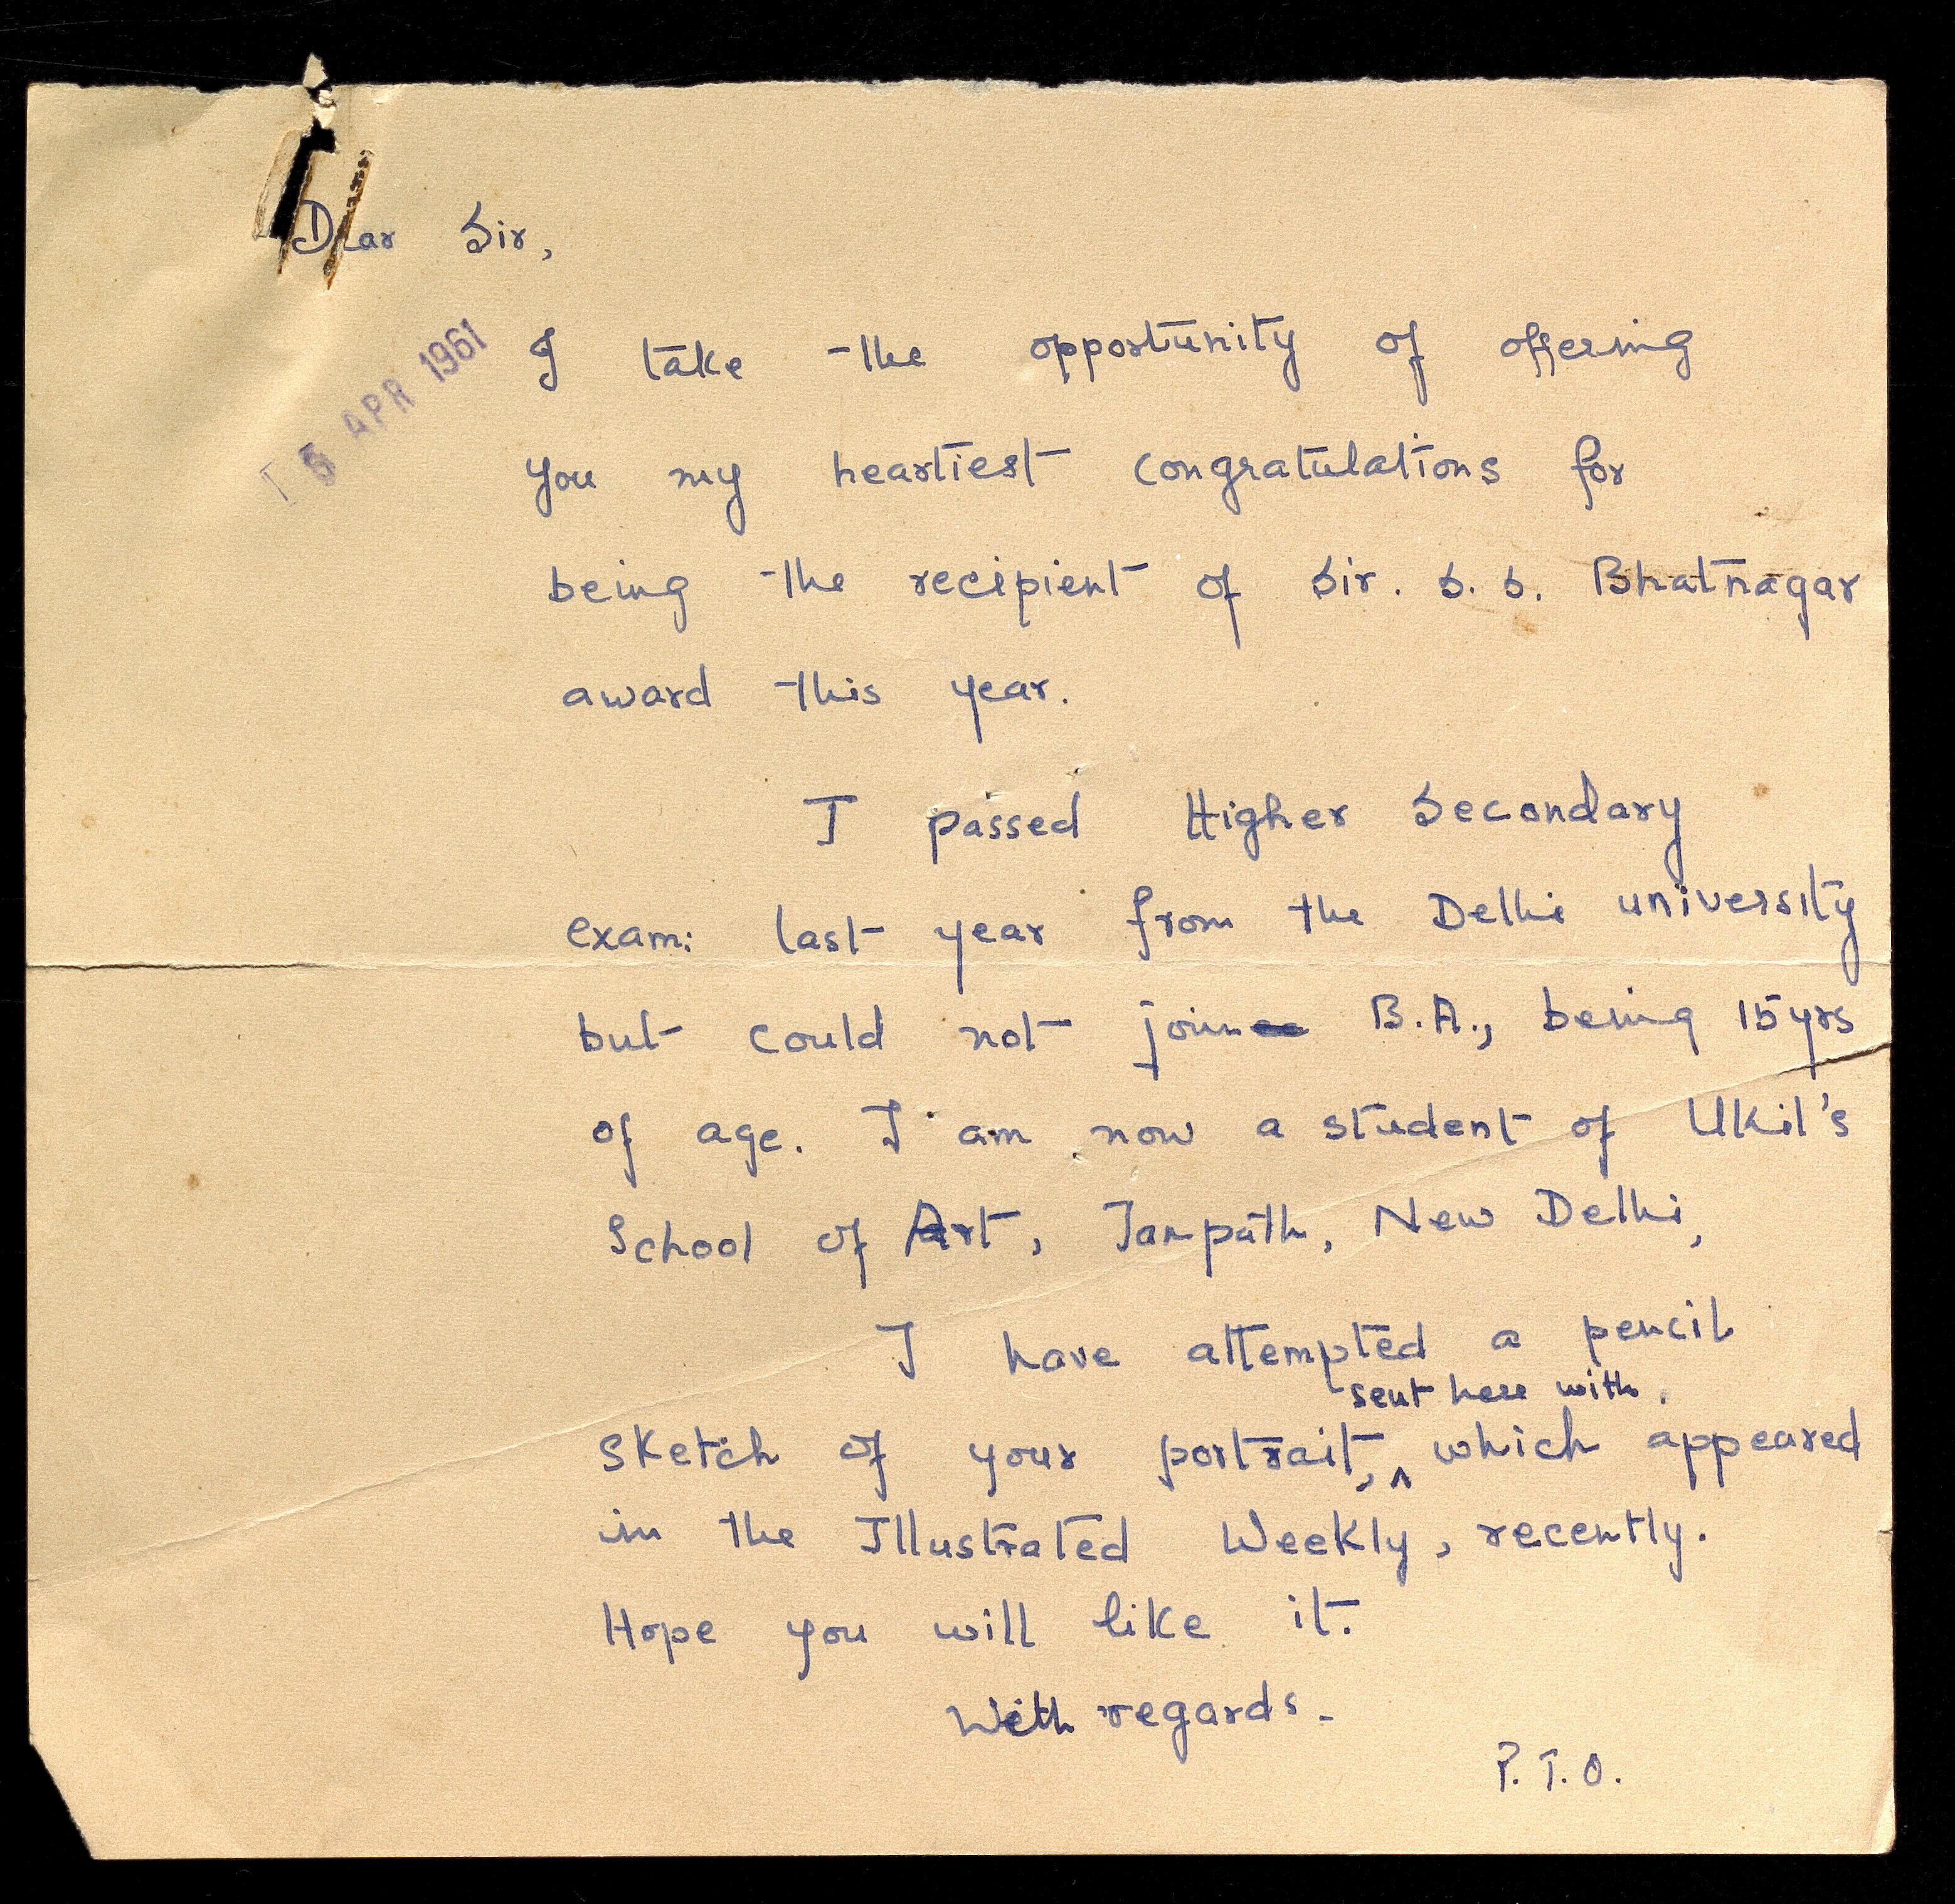 Dear Sir,
5 APR 1961
I take the opportunity of offering
you my heartiest congratulations for
being the recipient of Sir. S. S. Bhatnagar
award this year.
I passed Higher Secondary
exam: last year from the Delhi university
but could not join B.A., being 15yrs
of age. I am now a student of Ukil's
School of Art, Janpath, New Delhi,
I have attempted a pencil
sent here with.
sketch of your portrait, ^ which appeared
in the Illustrated Weekly, recently.
Hope you will like it.
With regards-
P.T.O.